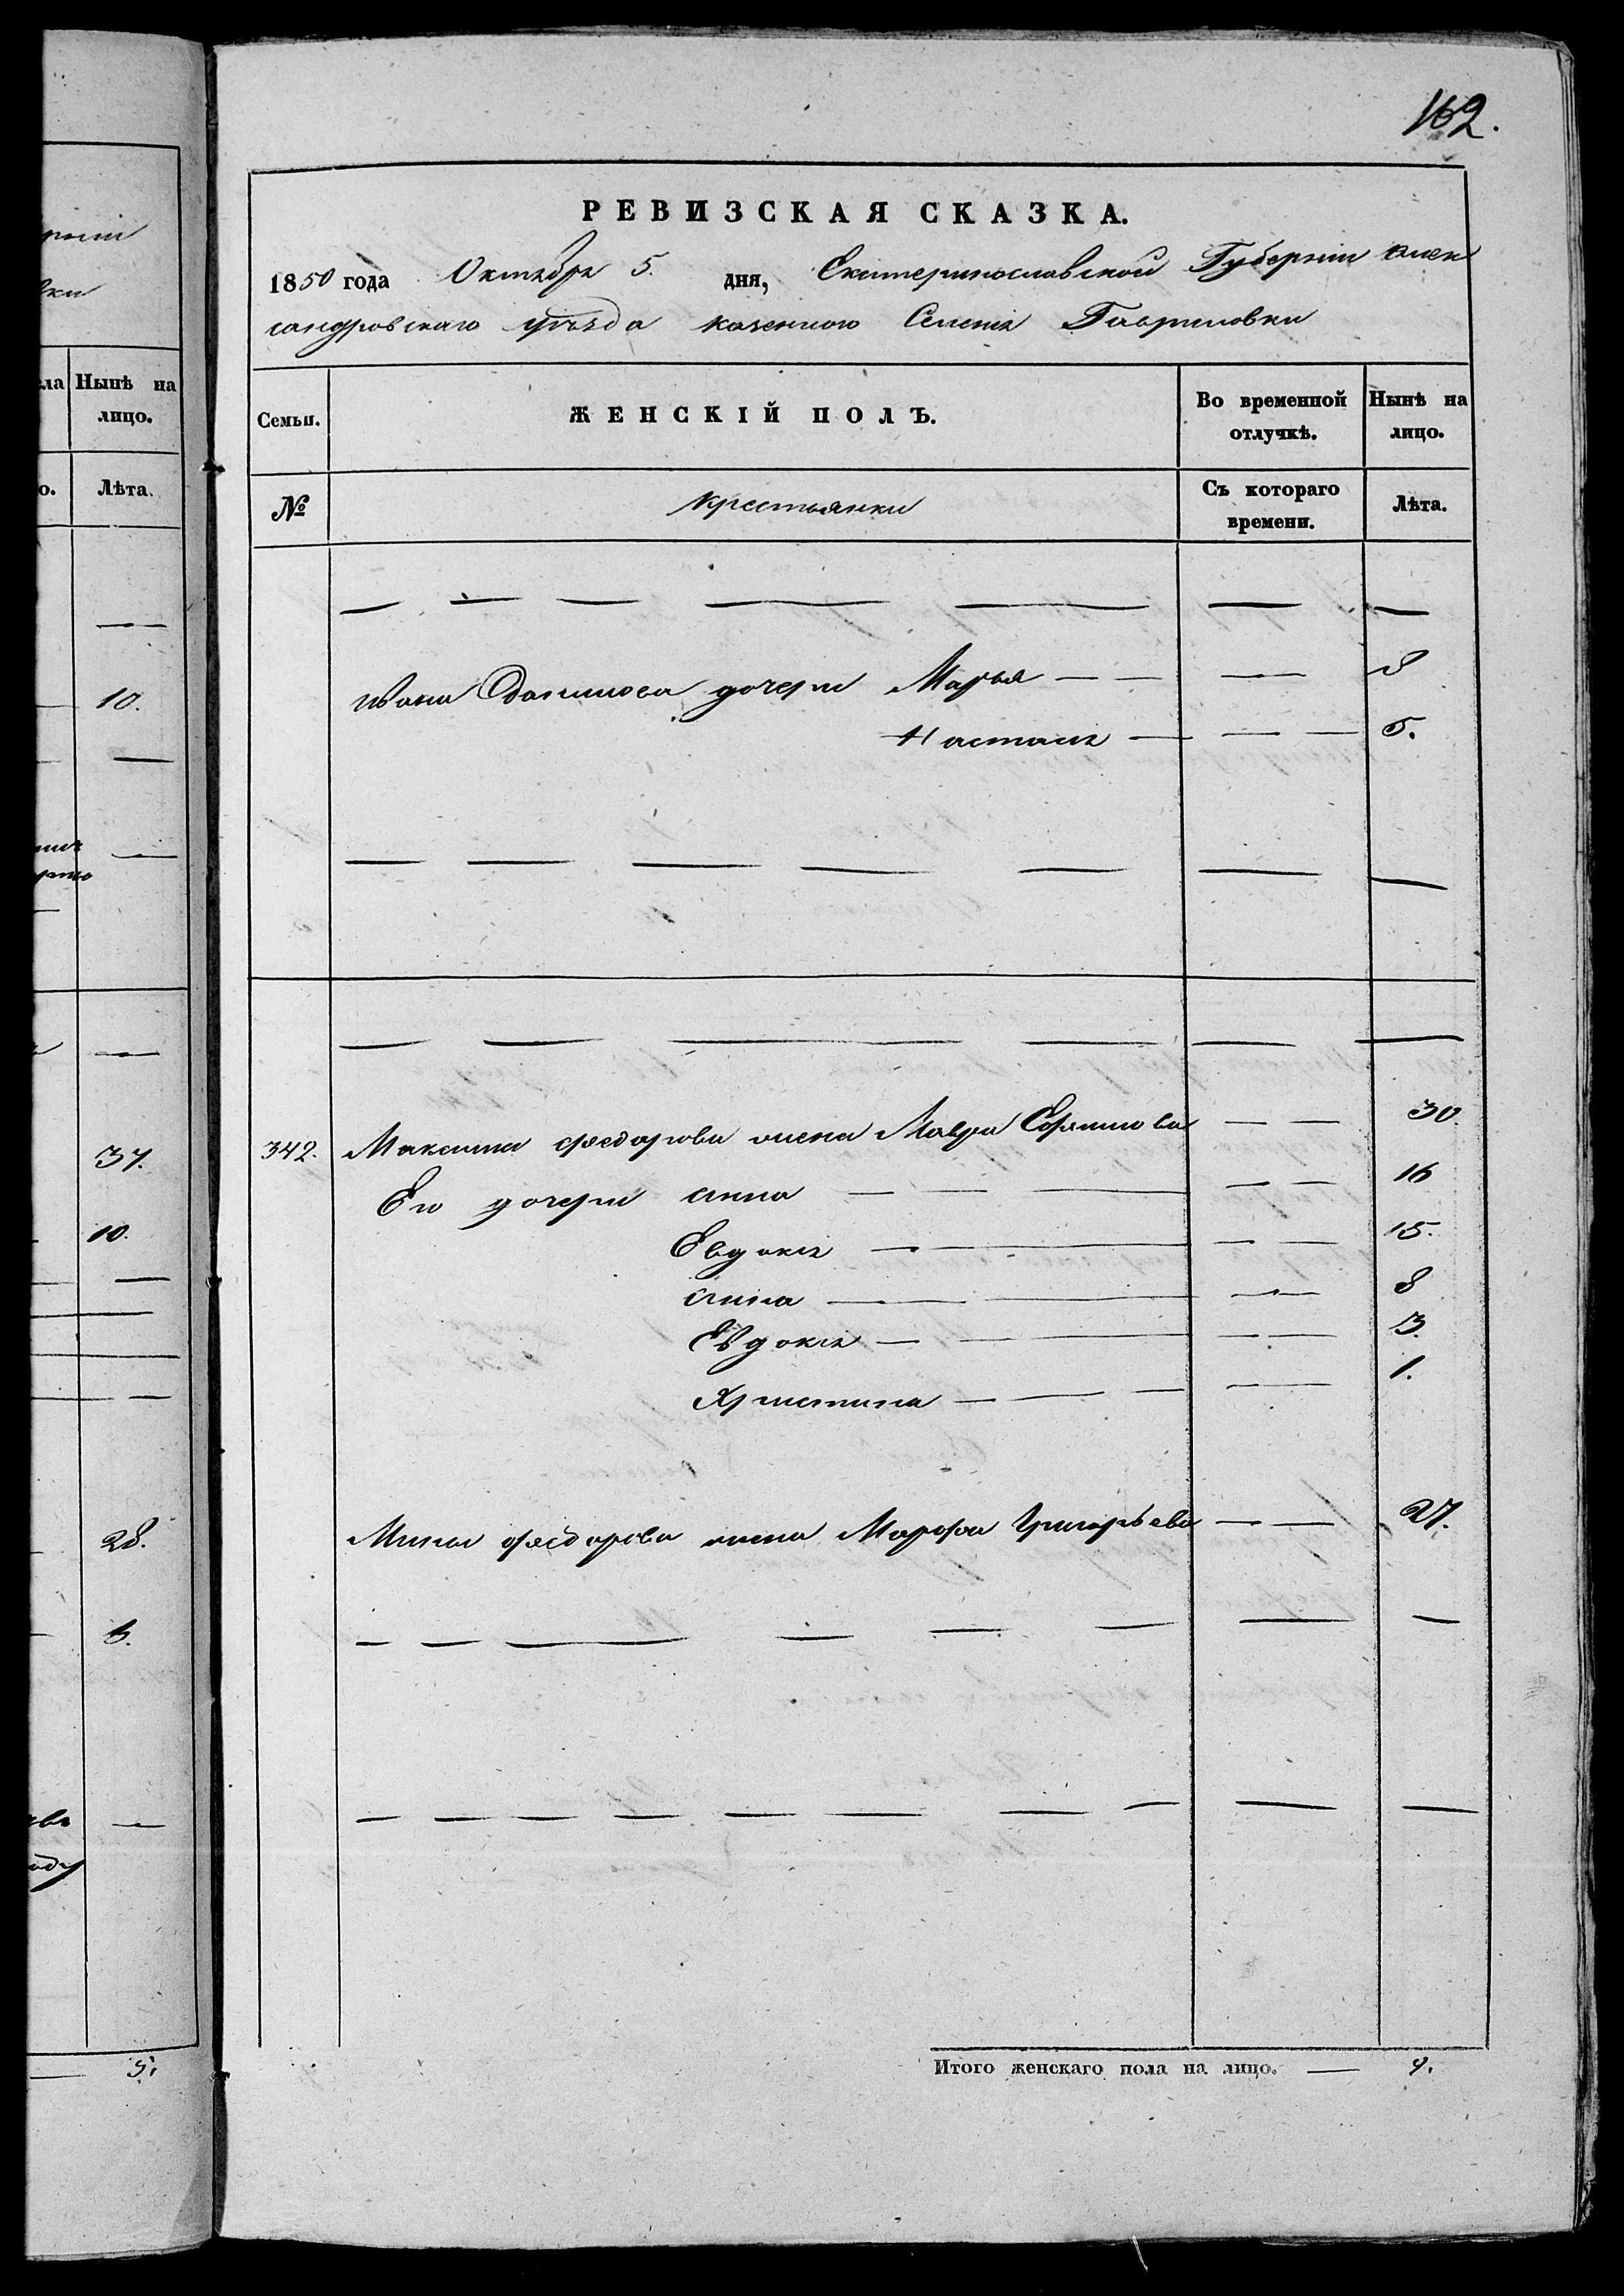 рніи
вки
ла Нынѣ на
лицо.
о. Лѣта.
10.
37.
10.
28.
6.
5.
162.
РЕВИЗСКАЯ СКАЗКА.
1850 года Октября 5. дня, Екатеринославской Губерніи Алек
сандровскаго уѣзда казенного Селенія Гавриловки
Семьи. ЖЕНСКІЙ ПОЛЪ. Во временной отлучкѣ. Нынѣ на лицо.
№ Крестьянки Съ котораго времени. Лѣта.
Ивана Данилова дочери Марья — — — 8
Настасья — — — 5.
342. Максима Федорова жена Мавра Ефимова — — 30.
Его дочери Анна — — — — — 16
Евдокія — — — — 15.
Анна — — — — 8
Евдокія — — — — 3.
Христина — — — — 1.
Мины Федорова жена Марфа Григорьева — — 27.
Итого женскаго пола на лицо. — 9.